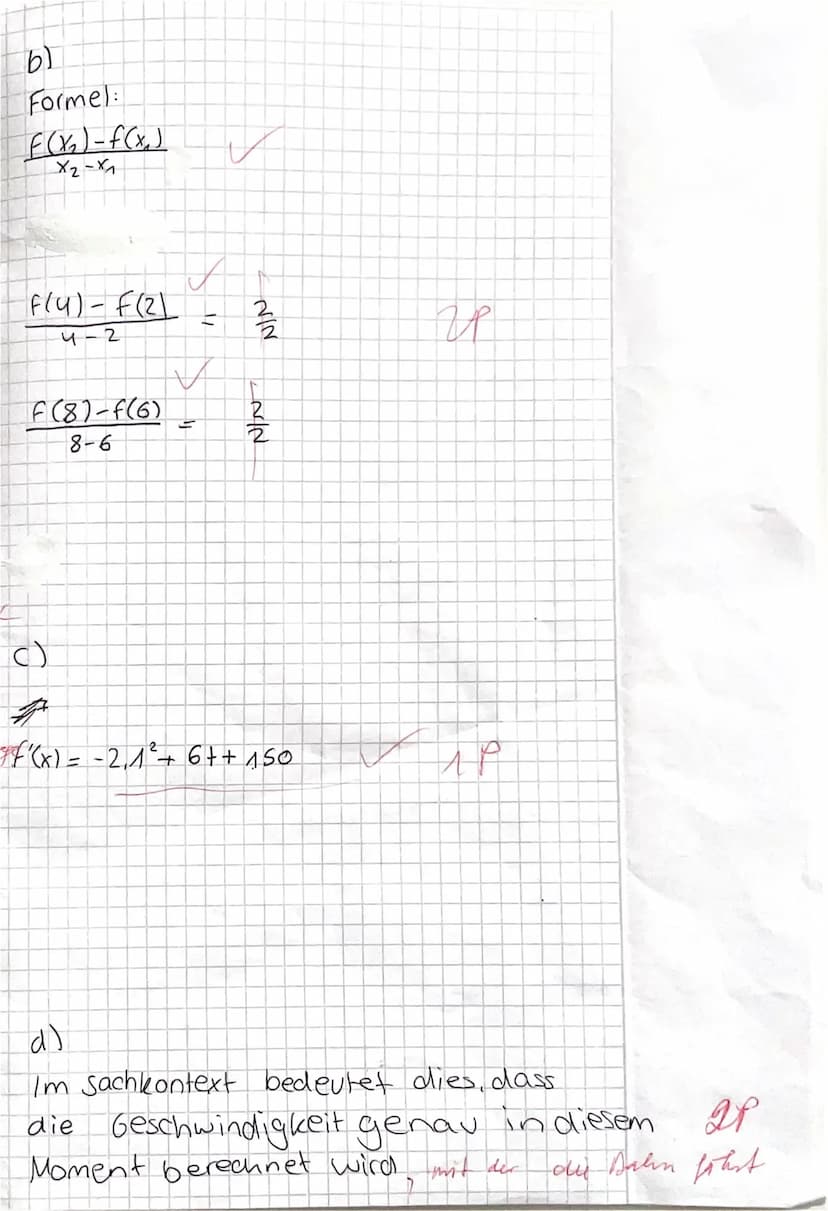 b)
Formel:
f(x₂)-f(x₁)
x₂-x₁
f(4)-f(2) = 2/2
4-2
2P
f(8)-f(6) = 2/2
8-6
c)
f'(x) = -2,1²+ 6t+ 150
1P
d)
Im Sachkontext bedeutet dies, dass
die Geschwindigkeit genau in diesem 2P
Moment berechnet wird, mit der die Bahn fährt